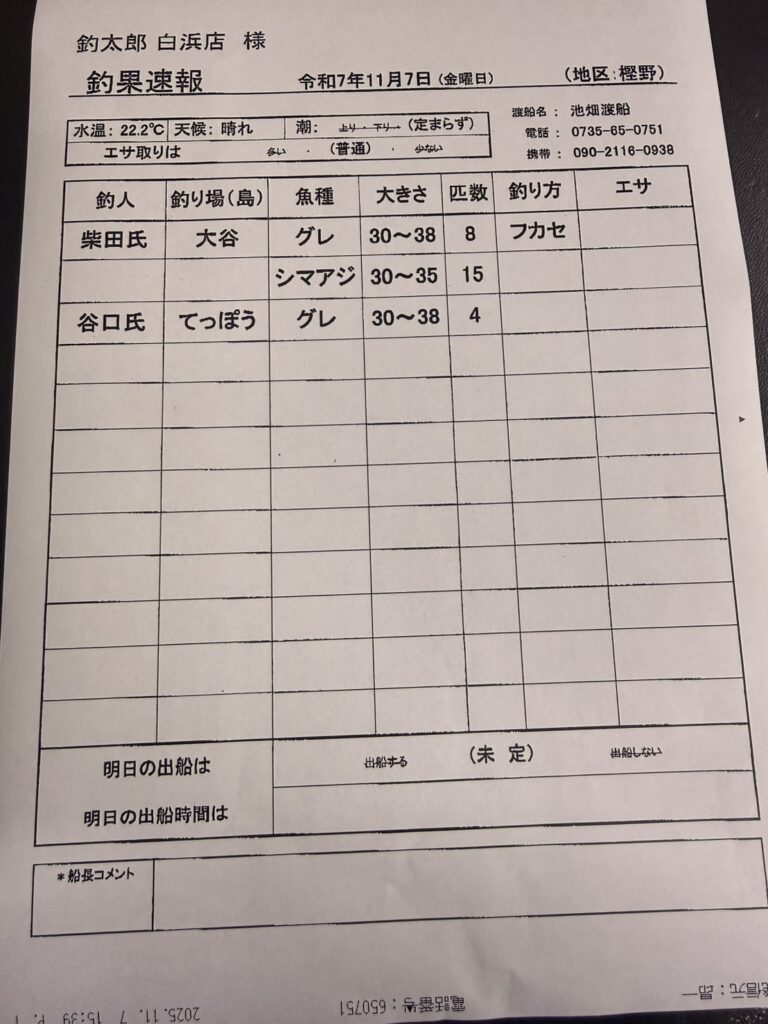 釣太郎 白浜店 様
釣果速報 令和7年11月7日(金曜日) (地区:樫野)
水温: 22.2℃ 天候: 晴れ 潮: 上り・下り・(定まらず)
エサ取りは 多い ・ (普通) ・ 少ない
渡船名: 池畑渡船
電話: 0735-65-0751
携帯: 090-2116-0938
釣人 釣り場(島) 魚種 大きさ 匹数 釣り方 エサ
柴田氏 大谷 グレ 30～38 8 フカセ
シマアジ 30～35 15
谷口氏 てっぽう グレ 30～38 4
明日の出船は 出船する (未 定) 出船しない
明日の出船時間は
*船長コメント
発信元:昂一 電話番号:650751 2025.11. 7 15:39 P. 1